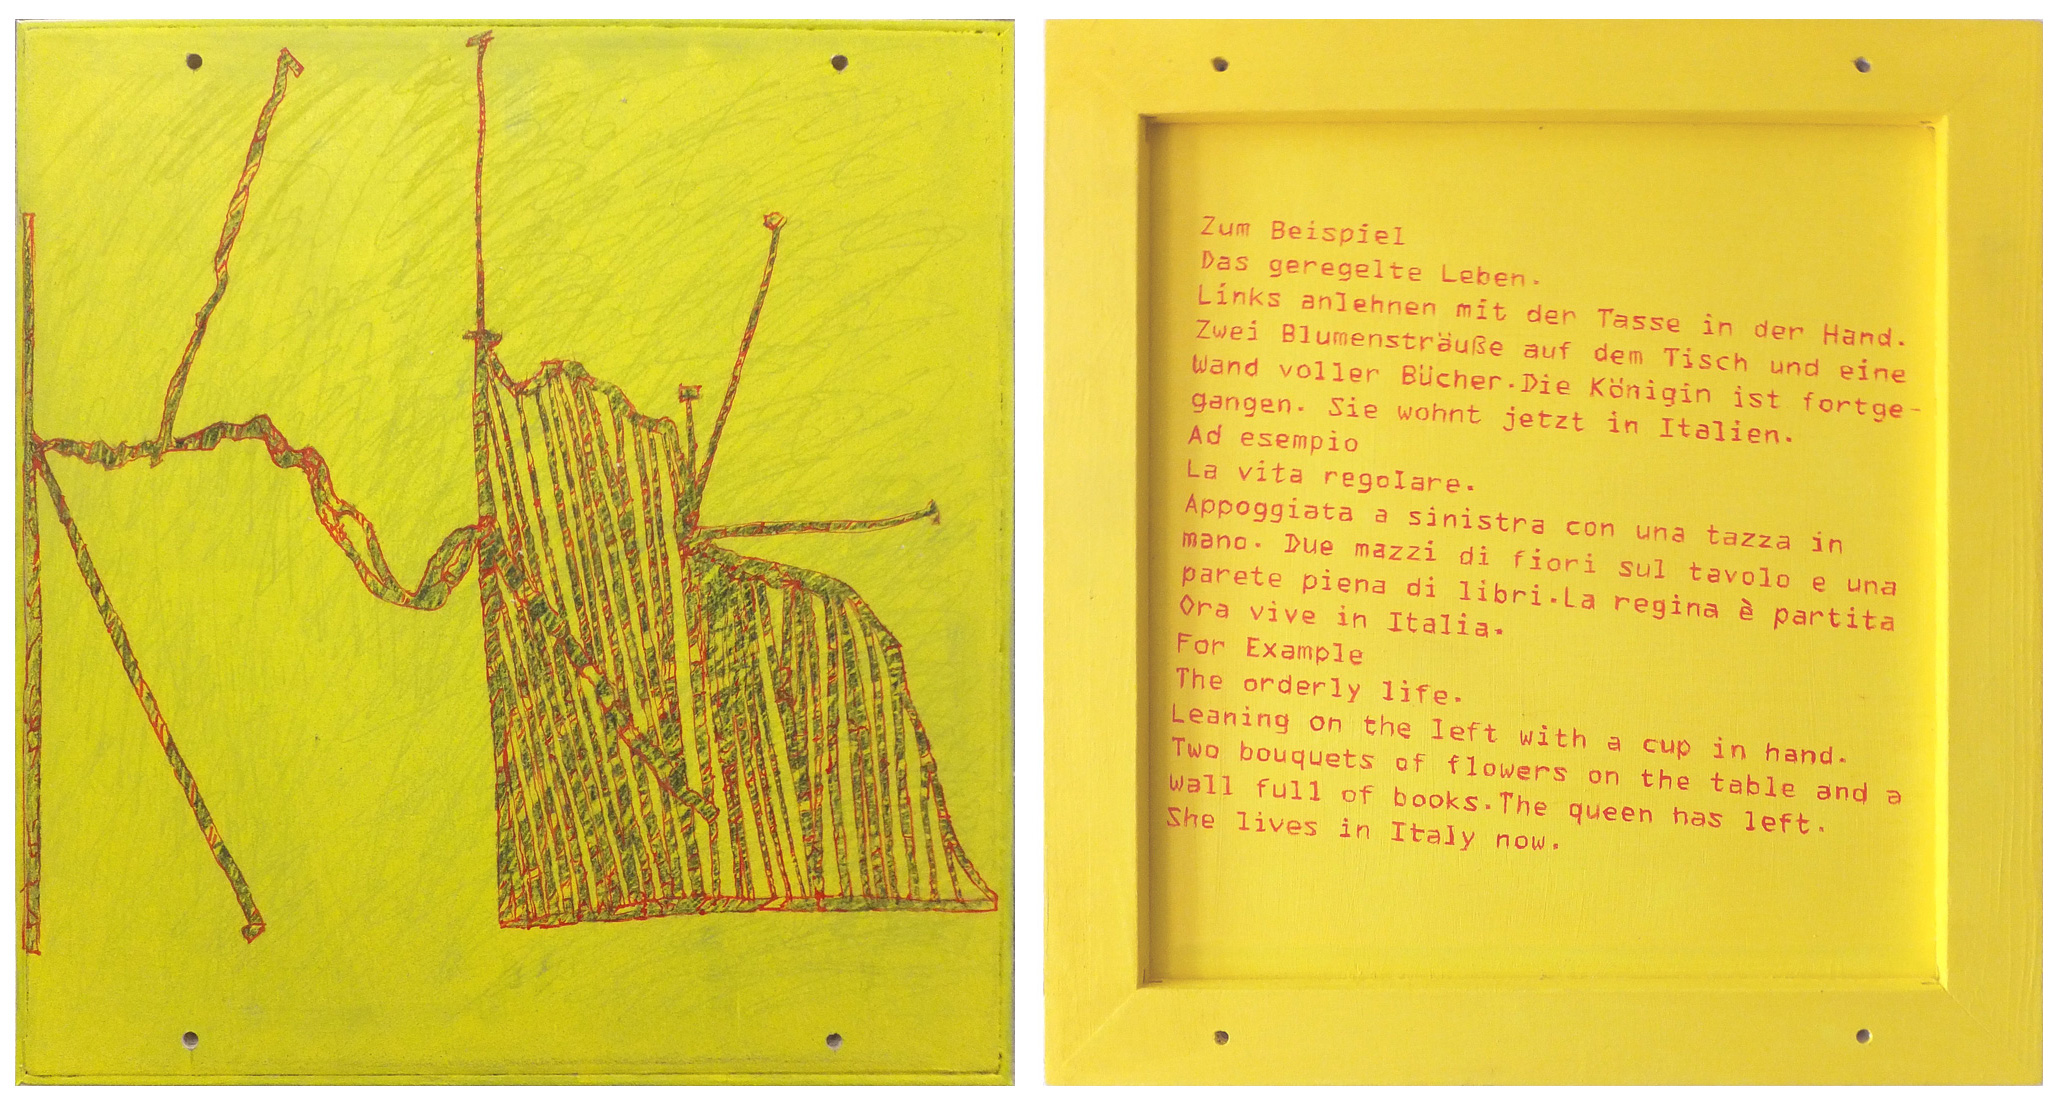 Zum Beispiel
Das geregelte Leben.
Links anlehnen mit der Tasse in der Hand.
Zwei Blumensträuße auf dem Tisch und eine
Wand voller Bücher.Die Königin ist fortge-
gangen. Sie wohnt jetzt in Italien.
Ad esempio
La vita regolare.
Appoggiata a sinistra con una tazza in
mano. Due mazzi di fiori sul tavolo e una
parete piena di libri.La regina è partita
Ora vive in Italia.
For Example
The orderly life.
Leaning on the left with a cup in hand.
Two bouquets of flowers on the table and a
wall full of books.The queen has left.
She lives in Italy now.